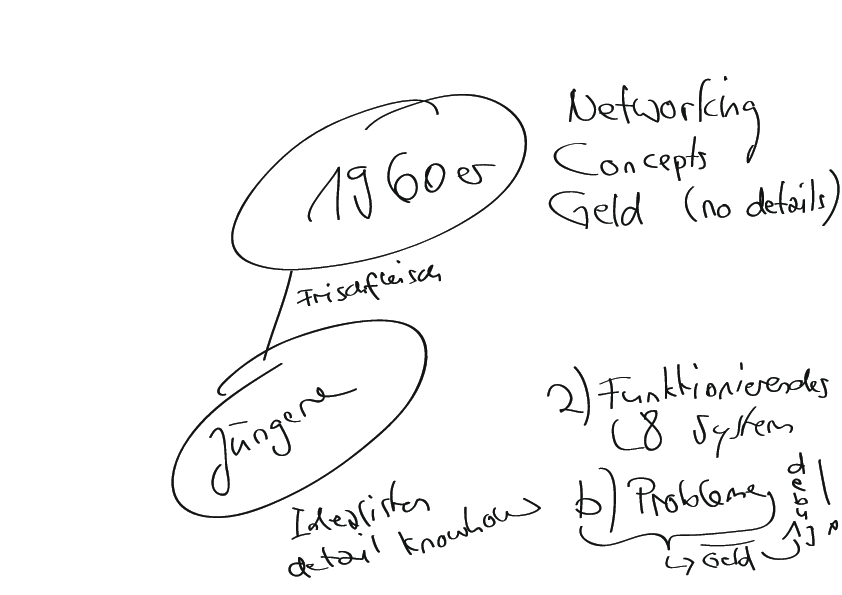 Networking
Concepts
Geld (no details)
1960er
Frischfleisch
Jüngere
Idealisten
detail knowhow
2) Funktionierendes
System
b) Probleme,
Geld